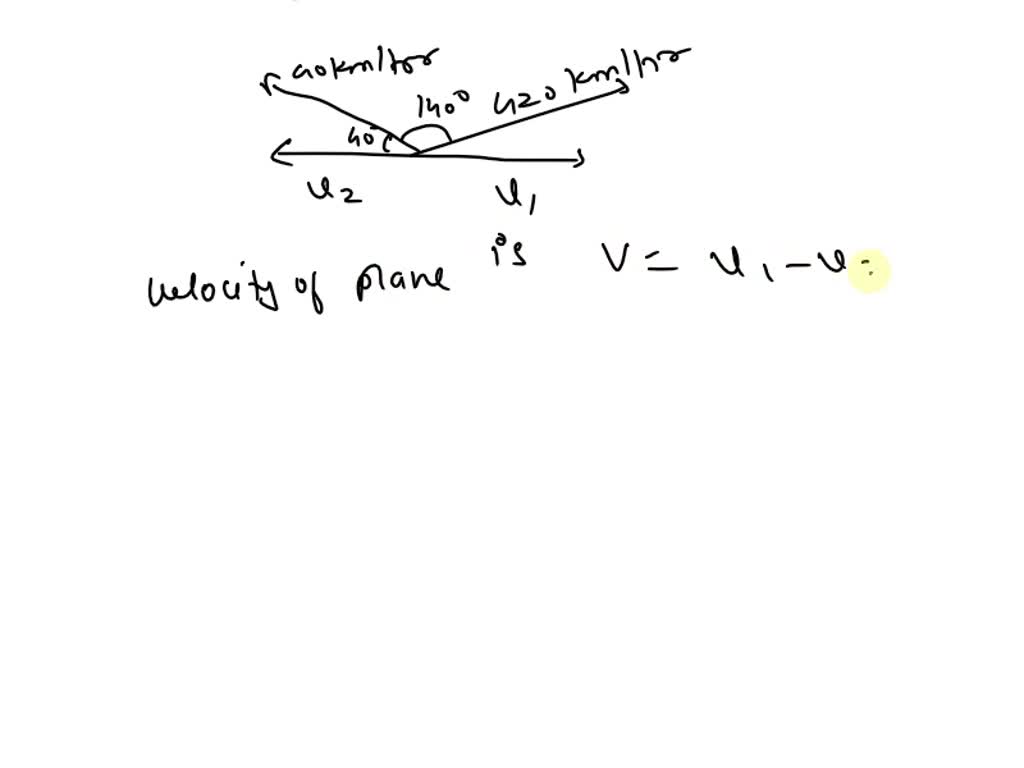 40km/hr
140° 420 km/hr
40°
u2 u1
velocity of plane is V = u1 - u